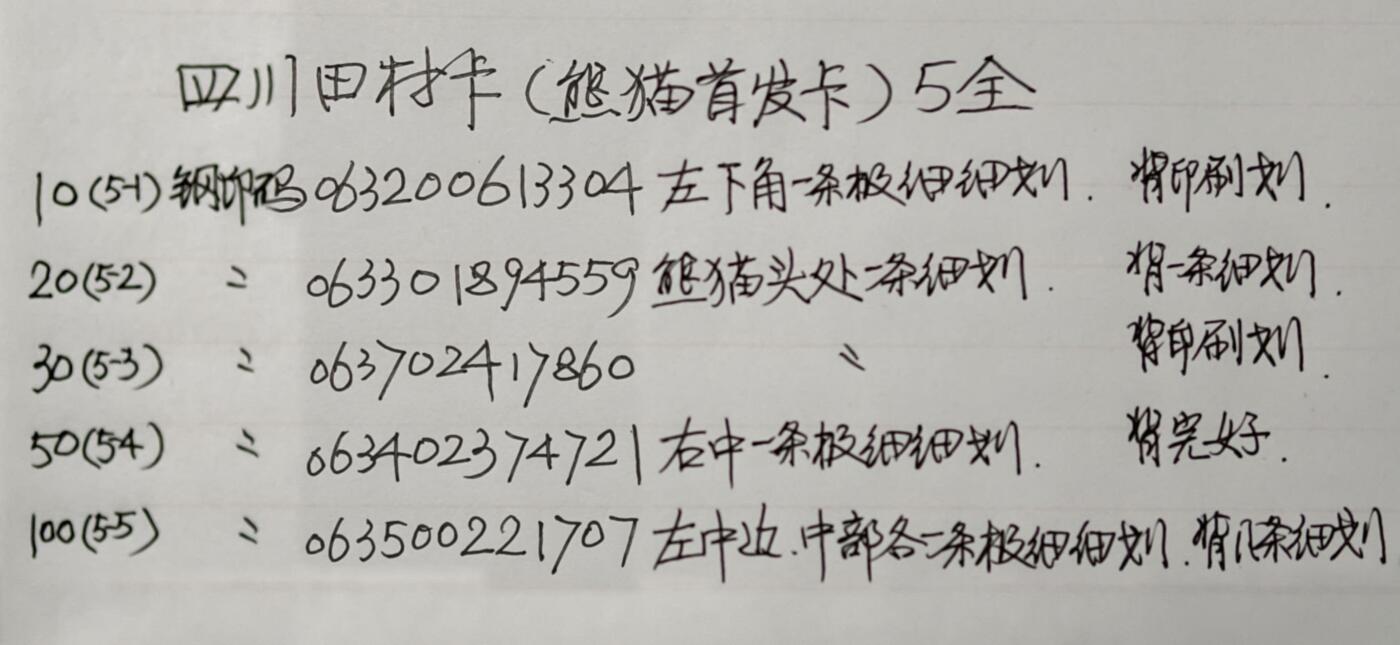 四川田村卡(熊猫首发卡)5全
10(5-1) 钢印码 063200613304 左下角一条极细细划. 背印刷划.
20(5-2) 〃 063301894559 熊猫头处一条细划. 背一条细划.
30(5-3) 〃 063702417860 〃 背印刷划.
50(5-4) 〃 063402374721 右中一条极细细划. 背完好.
100(5-5) 〃 063500221707 左中边.中部各一条极细细划.背几条细划